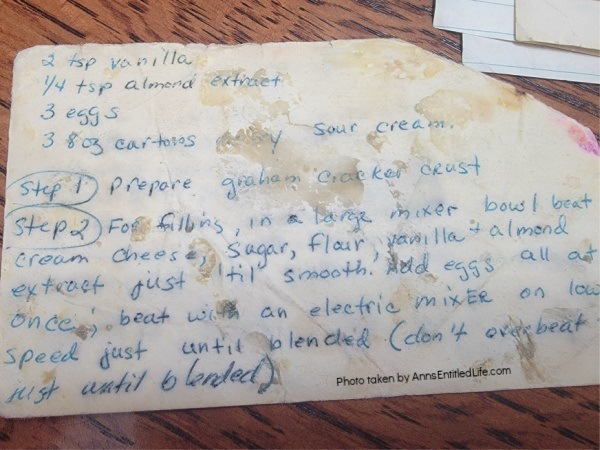 2 tsp vanilla
1/4 tsp almond extract
3 eggs
3 8oz cartons y sour cream.
Step 1 Prepare graham cracker crust
Step 2 For filling, in a large mixer bowl beat
cream cheese, sugar, flour, vanilla + almond
extract just 'til smooth. Add eggs all at
once; beat with an electric mixer on low
speed just until blended (don't overbeat
just until blended)
Photo taken by AnnsEntitledLife.com